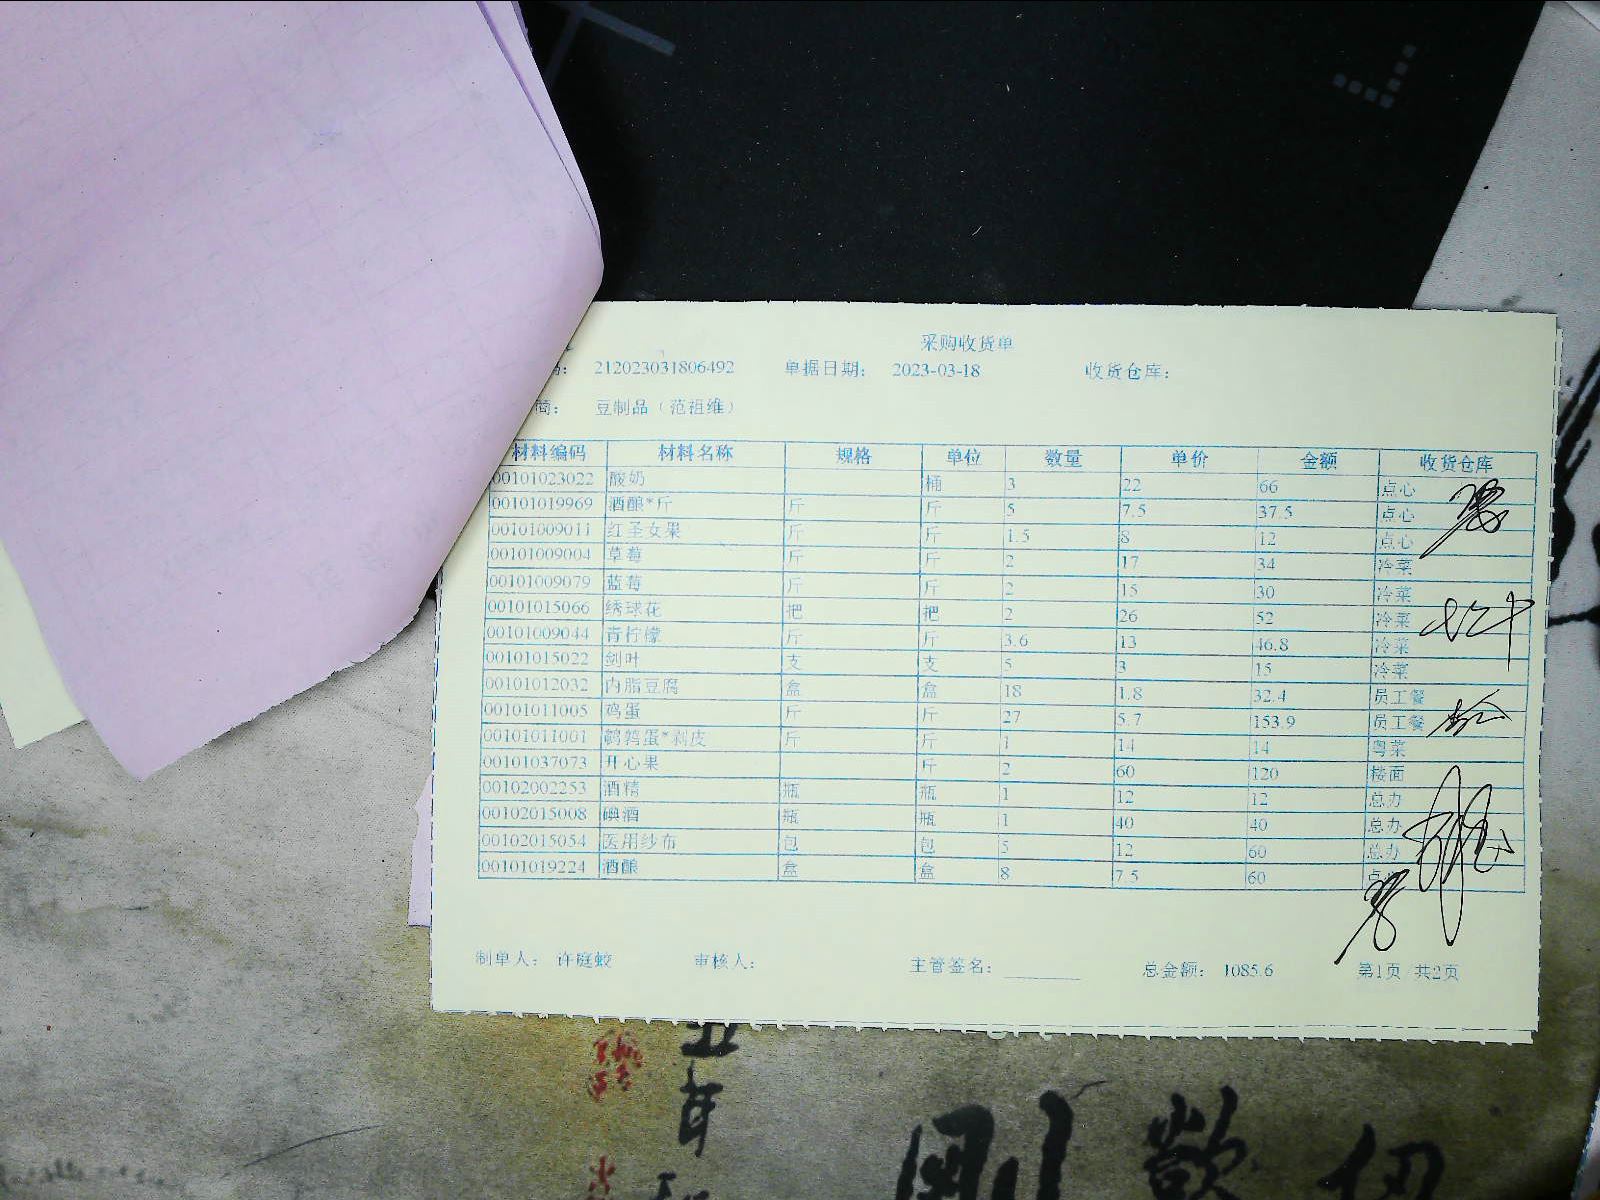 采购收货单
212023031806492 单据日期： 2023-03-18 收货仓库：
豆制品（范祖维）
材料编码 材料名称 规格 单位 数量 单价 金额 收货仓库
00101023022 酸奶 桶 3 22 66 点心
00101019969 酒酿*斤 斤 斤 5 7.5 37.5 点心
00101009011 红圣女果 斤 斤 1.5 8 12 点心
00101009004 草莓 斤 斤 2 17 34 冷菜
00101009079 蓝莓 斤 斤 2 15 30 冷菜
00101015066 绣球花 把 把 2 26 52 冷菜
00101009044 青柠檬 斤 斤 3.6 13 46.8 冷菜
00101015022 剑叶 支 支 5 3 15 冷菜
00101012032 内脂豆腐 盒 盒 18 1.8 32.4 员工餐
00101011005 鸡蛋 斤 斤 27 5.7 153.9 员工餐
00101011001 鹌鹑蛋*剥皮 斤 斤 1 14 14 粤菜
00101037073 开心果 斤 2 60 120 楼面
00102002253 酒精 瓶 瓶 1 12 12 总办
00102015008 碘酒 瓶 瓶 1 40 40 总办
00102015054 医用纱布 包 包 5 12 60 总办
00101019224 酒酿 盒 盒 8 7.5 60 点心
制单人： 许庭蛟 审核人： 主管签名： 总金额： 1085.6 第1页 共2页
五年
剛 欲